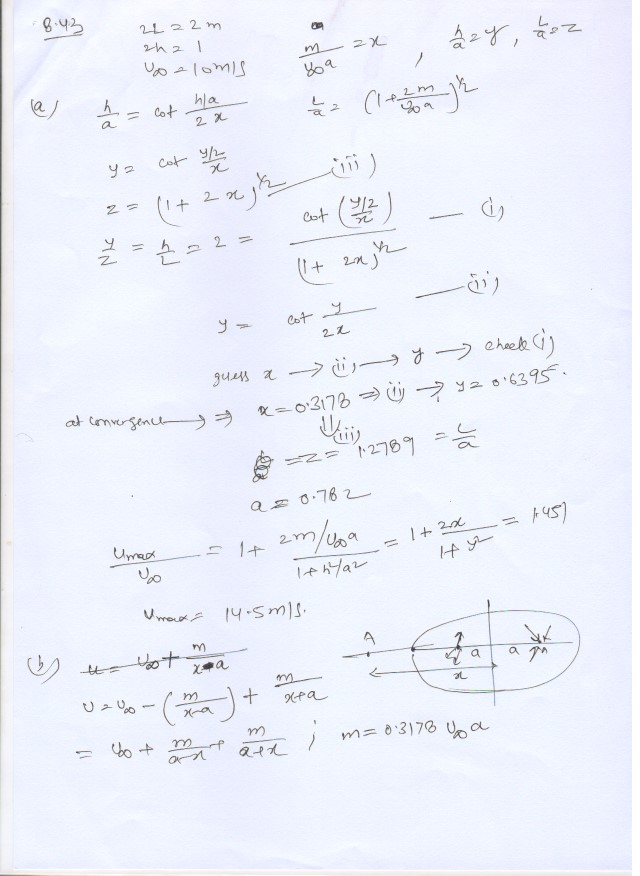 8.43
2L = 2m
2h = 1
U∞ = 10 m/s
m/U∞a = x , h/a = y , L/a = z
(a) h/a = cot (h/a)/(2x)   L/a = (1 + 2m/U∞a)^1/2
y = cot (y/2)/x
z = (1 + 2x)^1/2 (iii)
y/z = h/L = 2 = cot((y/2)/x) / (1 + 2x)^1/2 — (i)
y = cot y/2x — (ii)
guess x → (ii) → y → check (i)
at convergence → ⇒ x = 0.3178 ⇒ (ii) → y = 0.6395.
⇓ (iii)
= z = 1.2789 = L/a
a = 0.782
Umax/U∞ = 1 + (2m/U∞a)/(1 + h²/a²) = 1 + 2x/(1 + y²) = 1.451
Umax = 14.5 m/s.
(b) u = U∞ + m/(x-a)
A
a a m
x
U = U∞ - (m/(x-a)) + m/(x+a)
= U∞ + m/(a-x) + m/(a+x) ; m = 0.3178 U∞ a